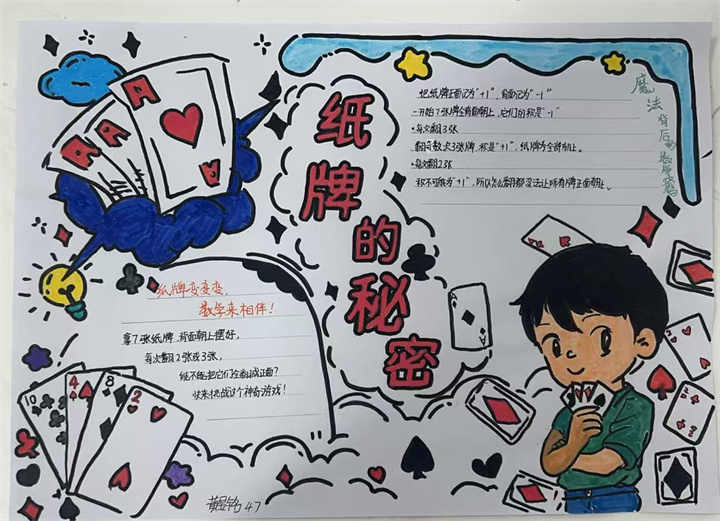 纸牌的秘密
把纸牌正面记为"+1"，背面记为"-1"
一开始7张牌全背面朝上，它们的积是"-1"
•每次翻3张
翻奇数次3张牌，积是"+1"，纸牌为全部朝上。
•每次翻2张
积不可能为"+1"，所以怎么翻都没法让所有牌正面朝上。
魔法背后的
纸牌变变变，
数学来相伴！
拿7张纸牌，背面朝上摆好，
每次翻2张或3张，
能不能把它们全翻成正面？
快来挑战这个神奇游戏！
A
A
A
A
A
10
4
8
2
47